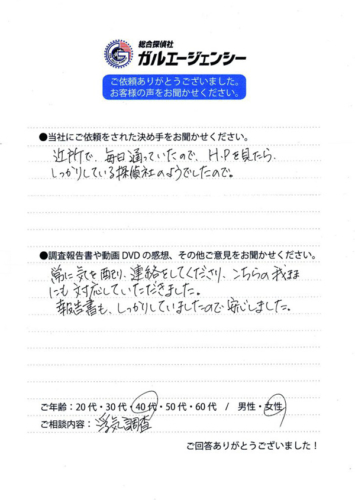 総合探偵社
ガルエージェンシー
ご依頼ありがとうございました。
お客様の声をお聞かせください。
●当社にご依頼をされた決め手をお聞かせください。
近所で、毎日通っていたので、H.Pを見たら、
しっかりしている探偵社のようでしたので。
●調査報告書や動画DVDの感想、その他ご意見をお聞かせください。
常に気を配り、連絡をしてくださり、こちらの我まま
にも対応していただきました。
報告書も、しっかりしていましたので安心しました。
ご年齢：20代・30代・40代・50代・60代 / 男性・女性
ご相談内容：浮気調査
ご回答ありがとうございました！